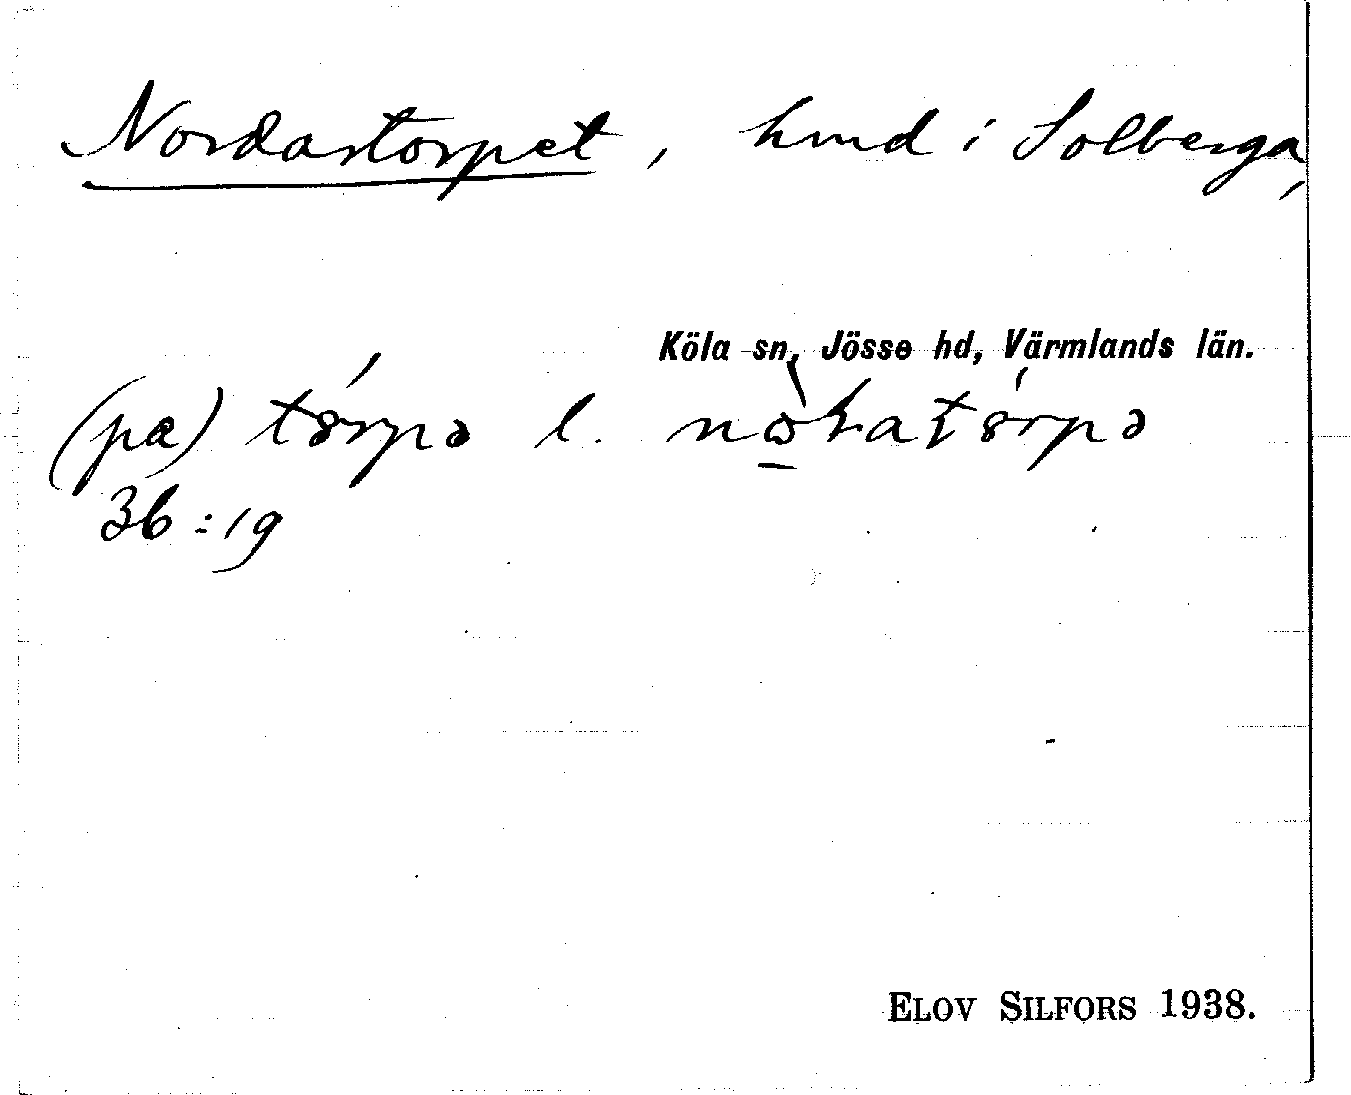 Nordastorpet, hmd i Solberga,
Köla sn, Jösse hd, Värmlands län.
(pæ) l.
36:19
ELOV SILFORS 1938.